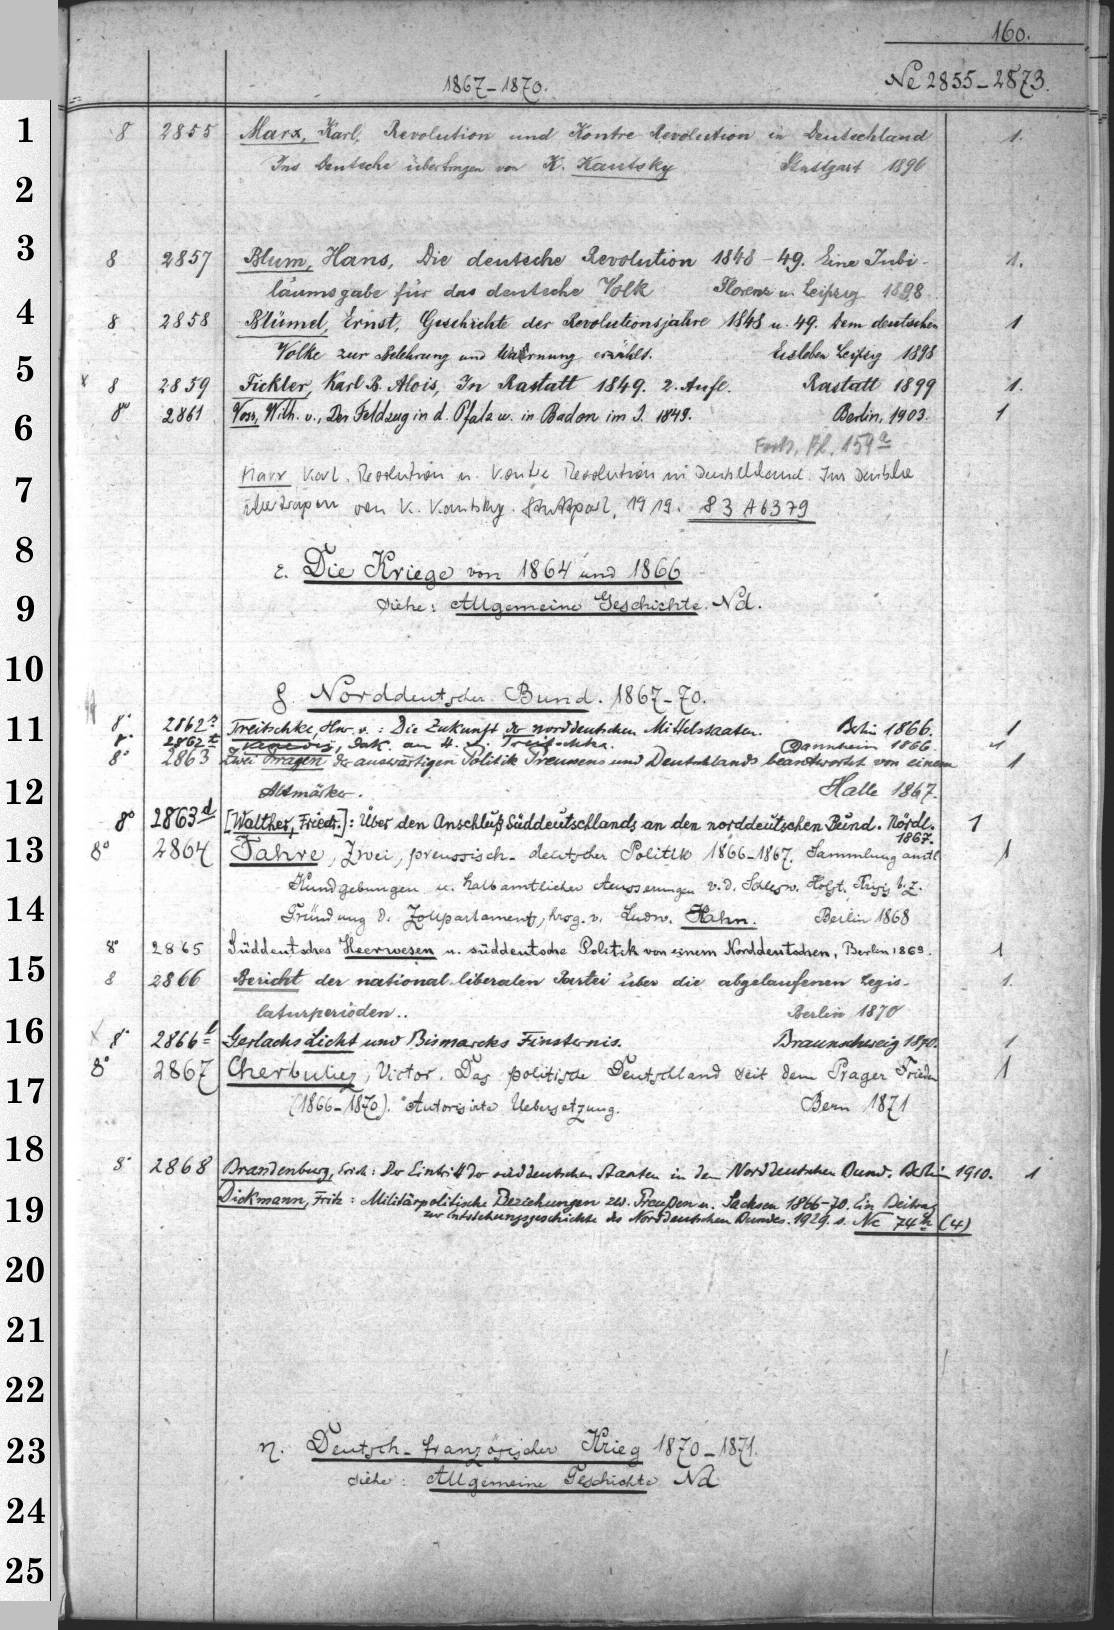 160.
1867-1870. Ne 2855-2873.
1 8 2855 Marx, Karl, Revolution und Kontre-Revolution in Deutschland 1.
Ins Deutsche übertragen von K. Kautsky Stuttgart 1896
2
3 8 2857 Blum, Hans, Die deutsche Revolution 1848-49. Eine Jubi- 1.
läumsgabe für das deutsche Volk Florenz u. Leipzig 1898
4 8 2858 Blümel, Ernst, Geschichte der Revolutionsjahre 1848 u. 49. Dem deutschen 1
Volke zur Belehrung und Warnung erzählt. Eisleben Leipzig 1898
5 x 8 2859 Fickler, Karl B. Alois, In Rastatt 1849. 2. Aufl. Rastatt 1899 1.
6 8º 2861 Voss, Wilh. v., Der Feldzug in d. Pfalz u. in Baden im J. 1849. Berlin, 1903. 1
Forts. Bl. 159a
7 Marx Karl. Revolution u. Kontre Revolution in Deutschland. Ins Deutsche
übertragen von K. Kautsky. Stuttgart, 1919. 83 A 6379
8 ε. Die Kriege von 1864 und 1866
9 siehe: Allgemeine Geschichte. Nd.
10
ζ. Norddeutscher Bund. 1867-70.
11 8º 2862a Treitschke, Hnr. v.: Die Zukunft der norddeutschen Mittelstaaten. Berlin 1866. 1
8º 2862b an H. v. Treitschke. Mannheim 1866. 1
8º 2863 Zwei Fragen der auswärtigen Politik Preussens und Deutschlands beantwortet von einem 1
12 Altmärker. Halle 1867.
8º 2863d [Walther, Friedr.]: Über den Anschluß Süddeutschlands an den norddeutschen Bund. Nördl. 1
1867.
13 8º 2864 Jahre, Zwei, preussisch-deutscher Politik 1866-1867. Sammlung amtl. 1
Kundgebungen u. halbamtlicher Aeusserungen v. d. Schlesw. Holst. Krisis b. z.
14 Gründung d. Zollparlaments, hrsg. v. Ludw. Hahn. Berlin 1868
8º 2865 Süddeutsches Heerwesen u. süddeutsche Politik von einem Norddeutschen, Berlin 1869. 1
15 8 2866 Bericht der national-liberalen Partei über die abgelaufenen Legis- 1.
laturperioden.. Berlin 1870
16 x 8º 2866b Gerlachs Licht und Bismarcks Finsternis. Braunschweig 1870. 1
8º 2867 Cherbuliez, Victor. Das politische Deutschland seit dem Prager Frieden 1
17 (1866-1870). Autorisirte Uebersetzung. Bern 1871
18 8º 2868 Brandenburg, Erich: Der Eintritt der süddeutschen Staaten in den Norddeutschen Bund. Berlin 1910. 1
19 Dickmann, Fritz: Militärpolitische Beziehungen zw. Preußen u. Sachsen 1866-70. Ein Beitrag
zur Entstehungsgeschichte des Norddeutschen Bundes. 1929. s. Nc 74m (4)
20
21
22
23 η. Deutsch-französischer Krieg 1870-1871.
siehe: Allgemeine Geschichte Nd
24
25